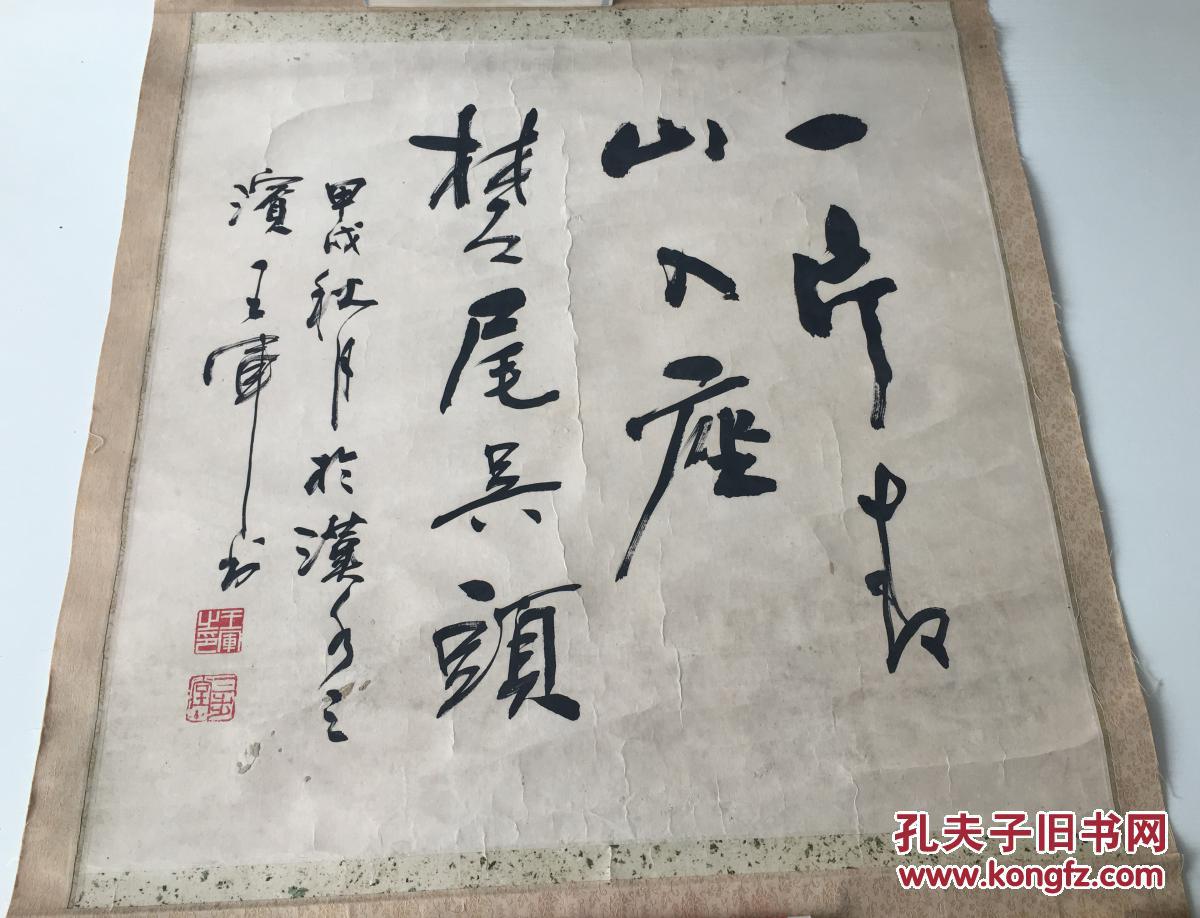 一片青
山入座
楚尾吴頭
甲戌秋月於漢水之
濱王軍书
王軍之印
孔夫子旧书网
www.kongfz.com